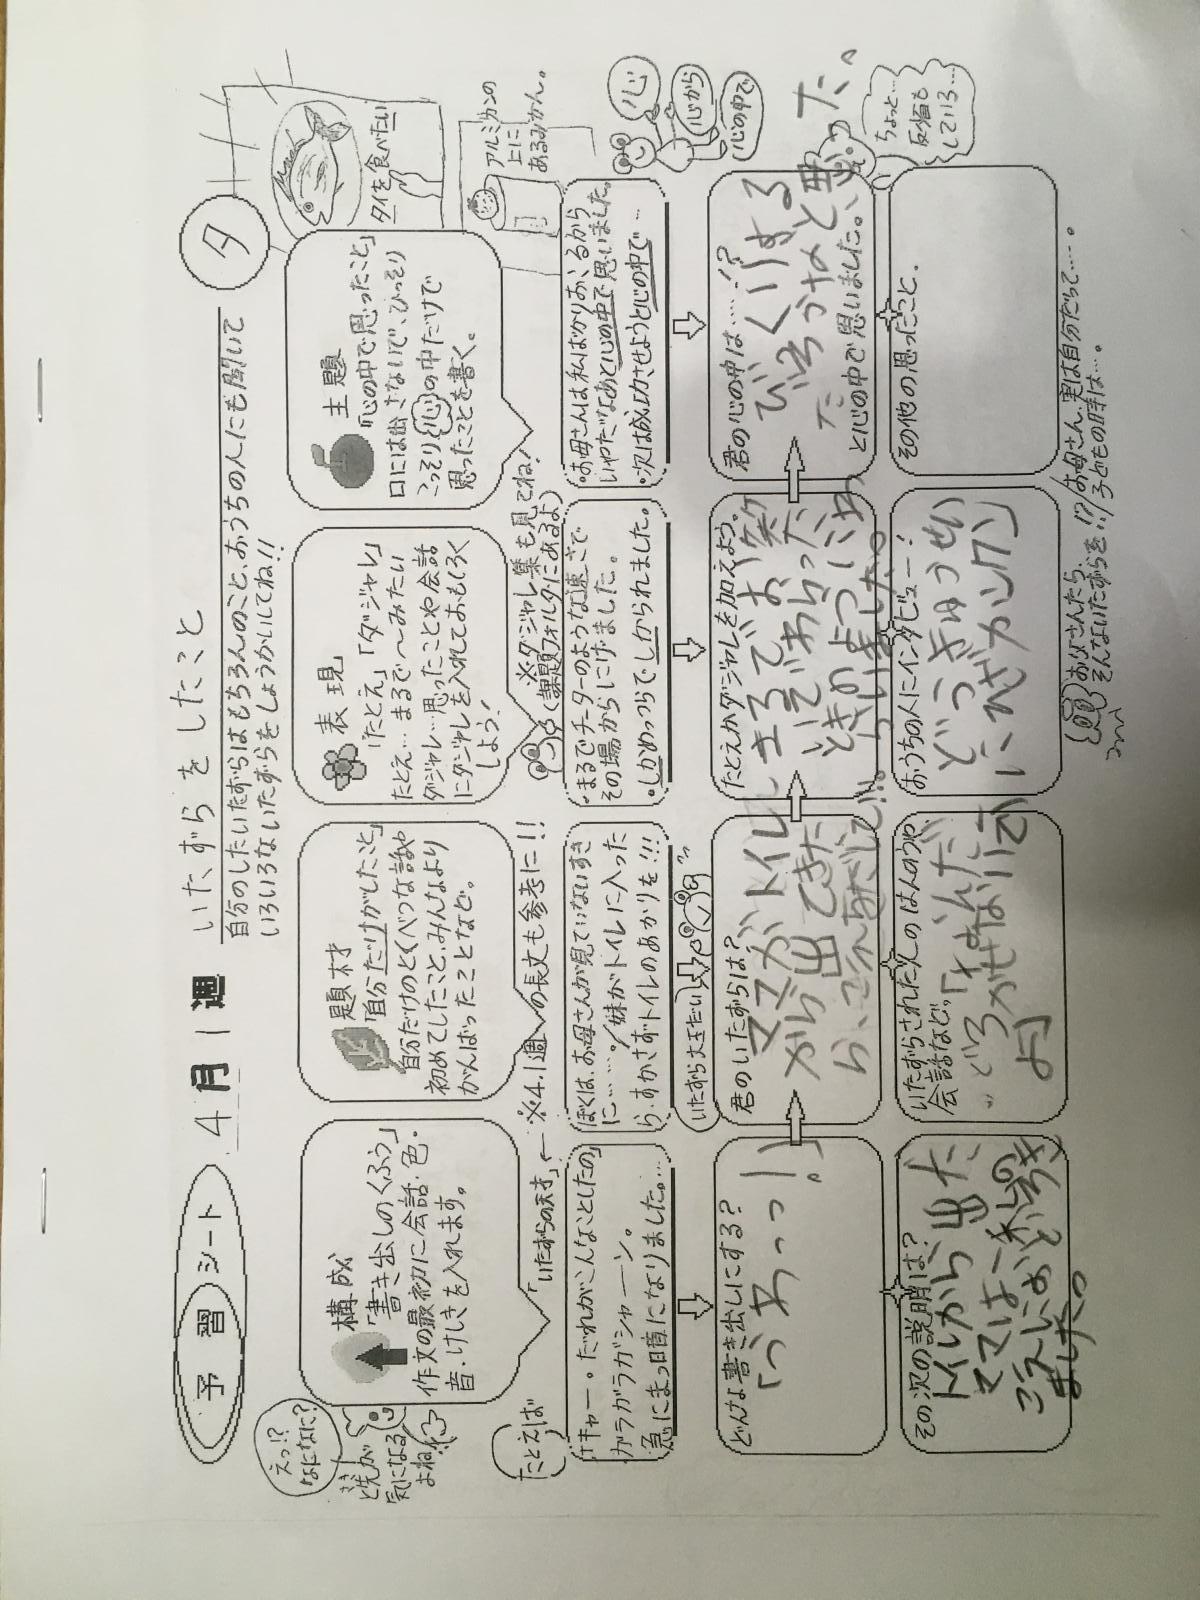 予習シート
4月1週
いたずらをしたこと
自分のしたいたずらはもちろんのこと、おうちの人にも聞いて
いろいろないたずらをしょうかいしてね!!
夕
えっ!?
なになに?
と先が
気になる
よね
構成
「書き出しのくふう」
作文の最初に会話・色・
音・けしきを入れます。
題材
「自分だけがしたこと」
自分だけのとくべつな話や
初めてしたこと、みんなより
がんばったことなど。
表現
「たとえ」「ダジャレ」
たとえ…まるで〜みたい
ダジャレ…思ったことや会話
にダジャレを入れておもしろく
しよう!
主題
「心の中で思ったこと」
口には出さないで、ひっそり
こっそり心の中だけで
思ったことを書く。
タイを食べたい
アルミカンの
上に
あるみかん。
「いたずらの天才」
※4.1週の長文も参考に!!
※ダジャレ集も見てね!
(課題フォルダにあるよ)
たとえば
・「キャー。だれがこんなことしたの」
・ガラガラガシャーン。
・急にまっ暗になりました。…
ぼくは、お母さんが見ていないすき
に……。/妹がトイレに入った
ら、すかさずトイレのあかりを!!!
・まるでチーターのような速さで
その場からにげました。
・しかめっつらでしかられました。
・お母さんは私ばかりおこるから
いやだなあと心の中で思いました。
・次は成功させようと心の中で…
心
心から
心の中で
いたずら大王だい
どんな書き出しにする?
「うわっっー」。
君のいたずらは?
ママがトイレ
から出てきた
たとえかダジャレを加えよう。
まるでお笑
ときのように
君の心の中は……!?
びっくりする
だろうなと思った。
と心の中で思いました。
ちょっと…
反省も
している…
その次の説明は?
トイレから出た
ママは一
ました。
いたずらされた人のはんのうや、
会話など。
よ」
おうちの人にインタビュー!
どうきゅうせい
にひざカックン
その他の思ったこと。
お父さんたら、
そんないたずらを!!
お母さん、実は自分だって……。
子どもの時は…。